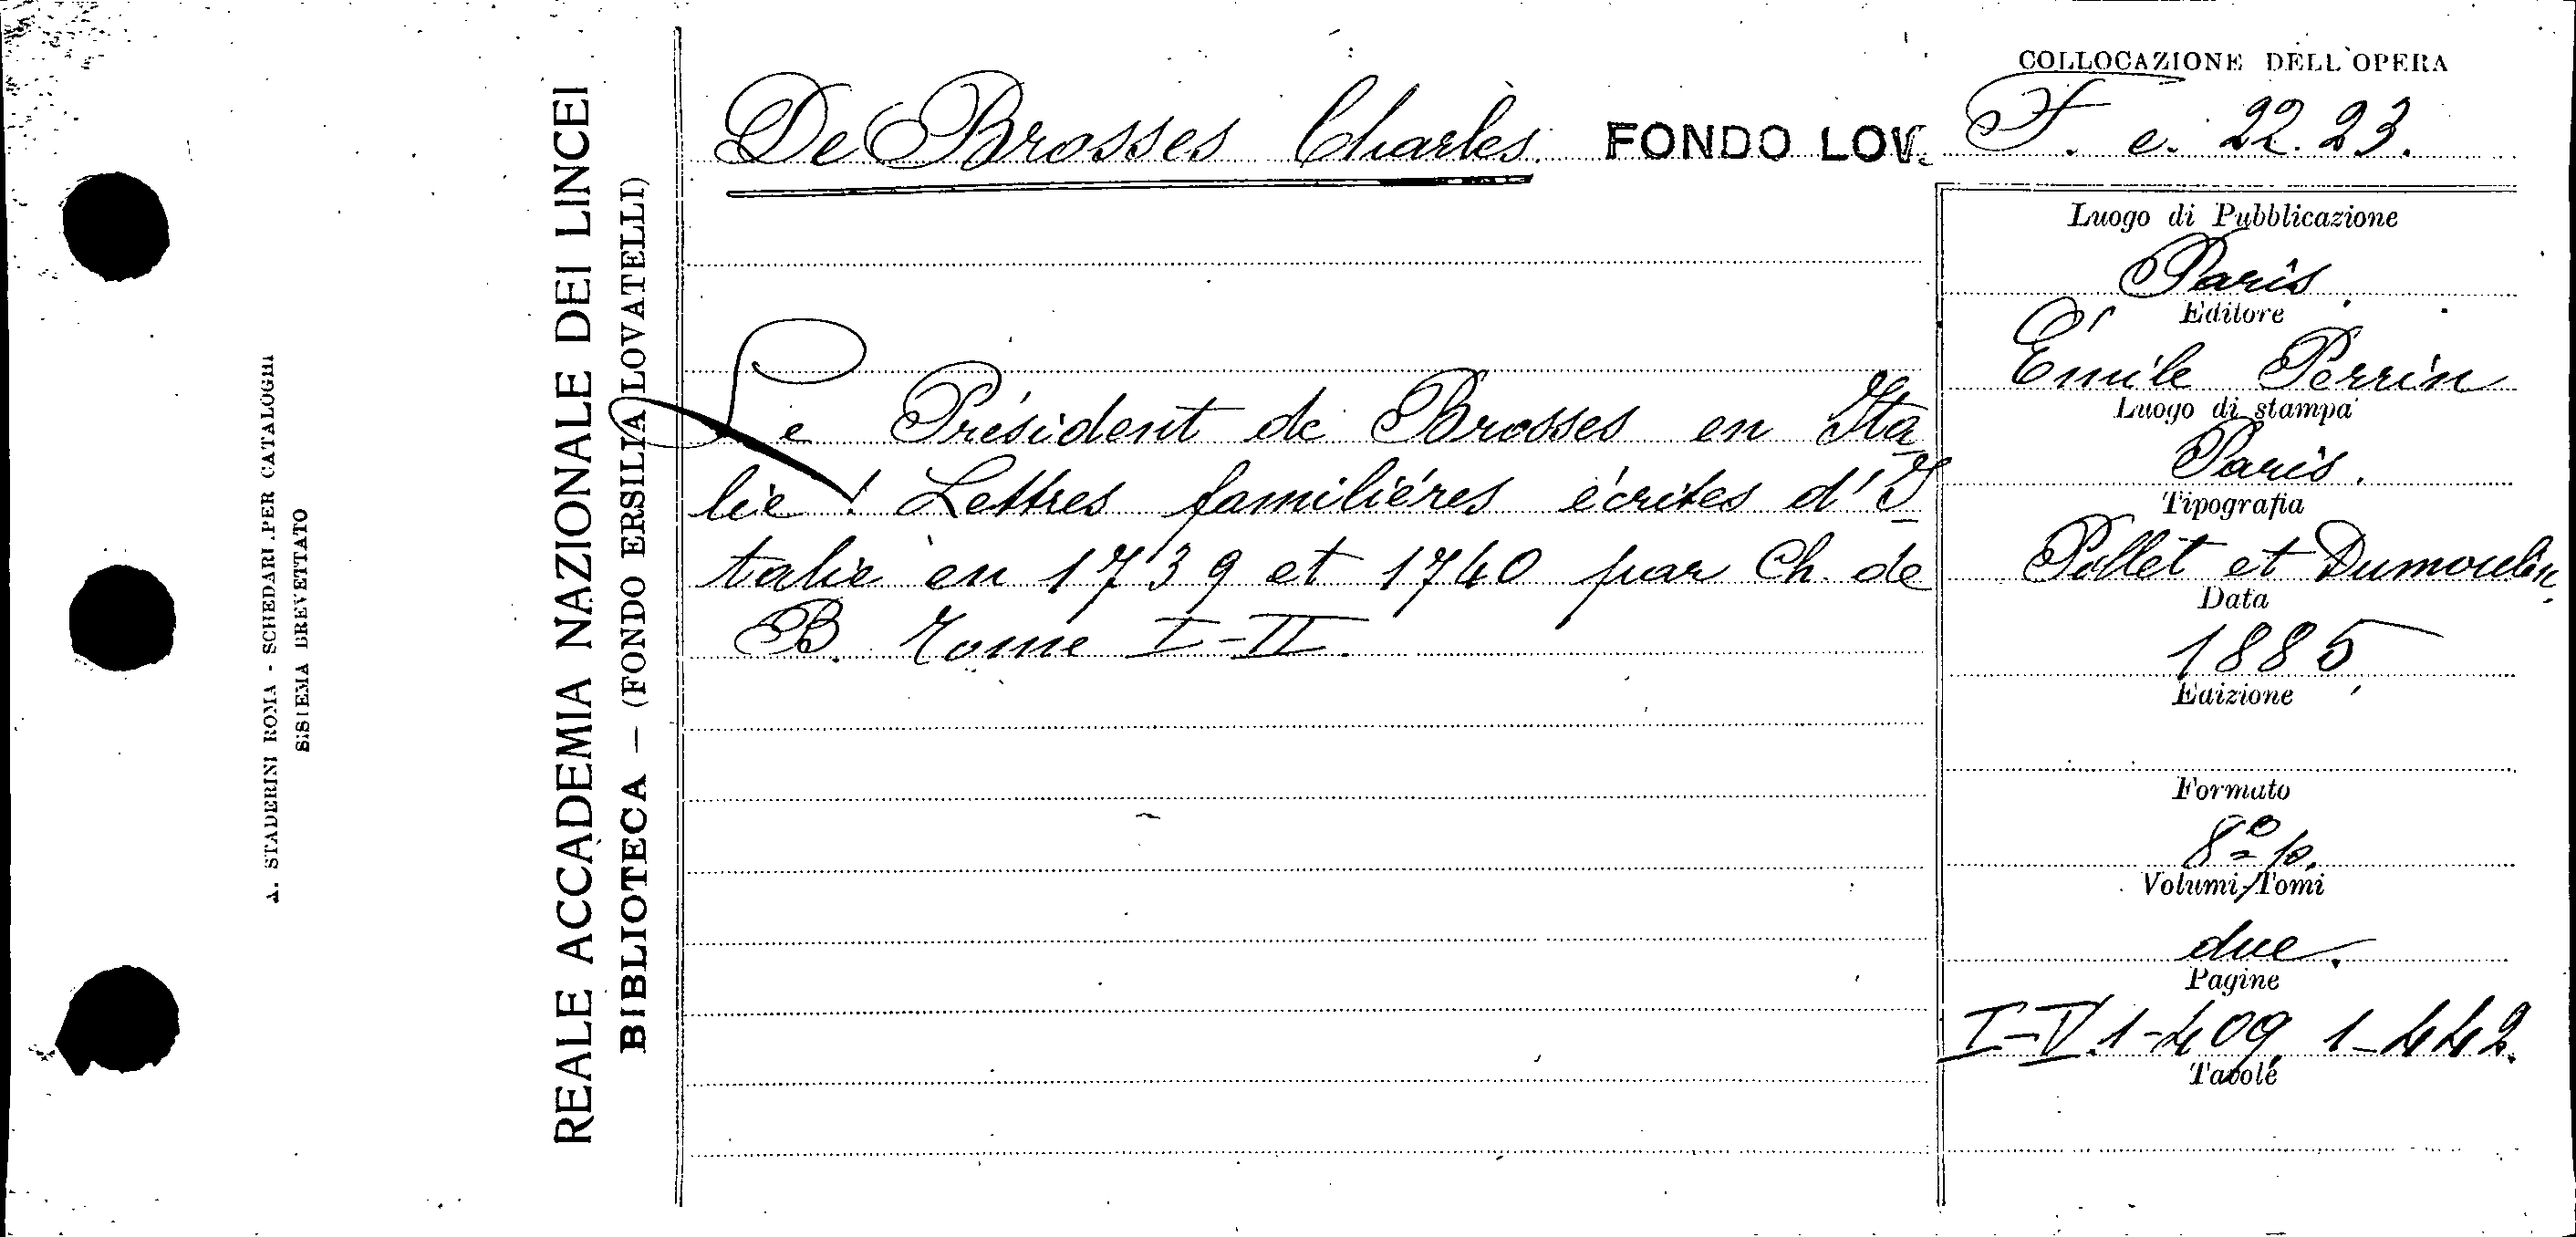 A. STADERINI ROMA - SCHEDARI PER CATALOGHI
SISTEMA BREVETTATO
REALE ACCADEMIA NAZIONALE DEI LINCEI
BIBLIOTECA — (FONDO ERSILIA LOVATELLI)
De Brosses Charles. FONDO LOV.
Le Président de Brosses en Ita
lie! Lettres familiéres écrites d'I
talie en 1739 et 1740 par Ch. de
B. Tome I-II.
COLLOCAZIONE DELL'OPERA
F. e. 22.23.
Luogo di Pubblicazione
Paris.
Editore
Émile Perrin
Luogo di stampa
Paris.
Tipografia
Pillet et Dumoulin
Data
1885
Edizione
Formato
8º p.
Volumi/Tomi
due.
Pagine
I-V.1-409, 1-442.
Tavole